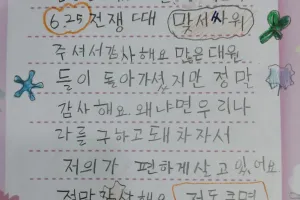 6.25전쟁 때 맞서싸워
주셔서감사해요 많은대원
들이 돌아가셨지만 정말
감사해요 왜냐면우리나
라를 구하고 돼 차자서
저희가 편하게살고있어요
정말감사해요